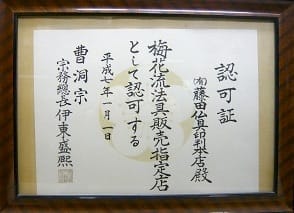 認可証
(有)藤田仏具印判本店殿
梅花流法具販売指定店
として認可する
平成七年一月一日
曹洞宗
宗務総長伊東盛熙